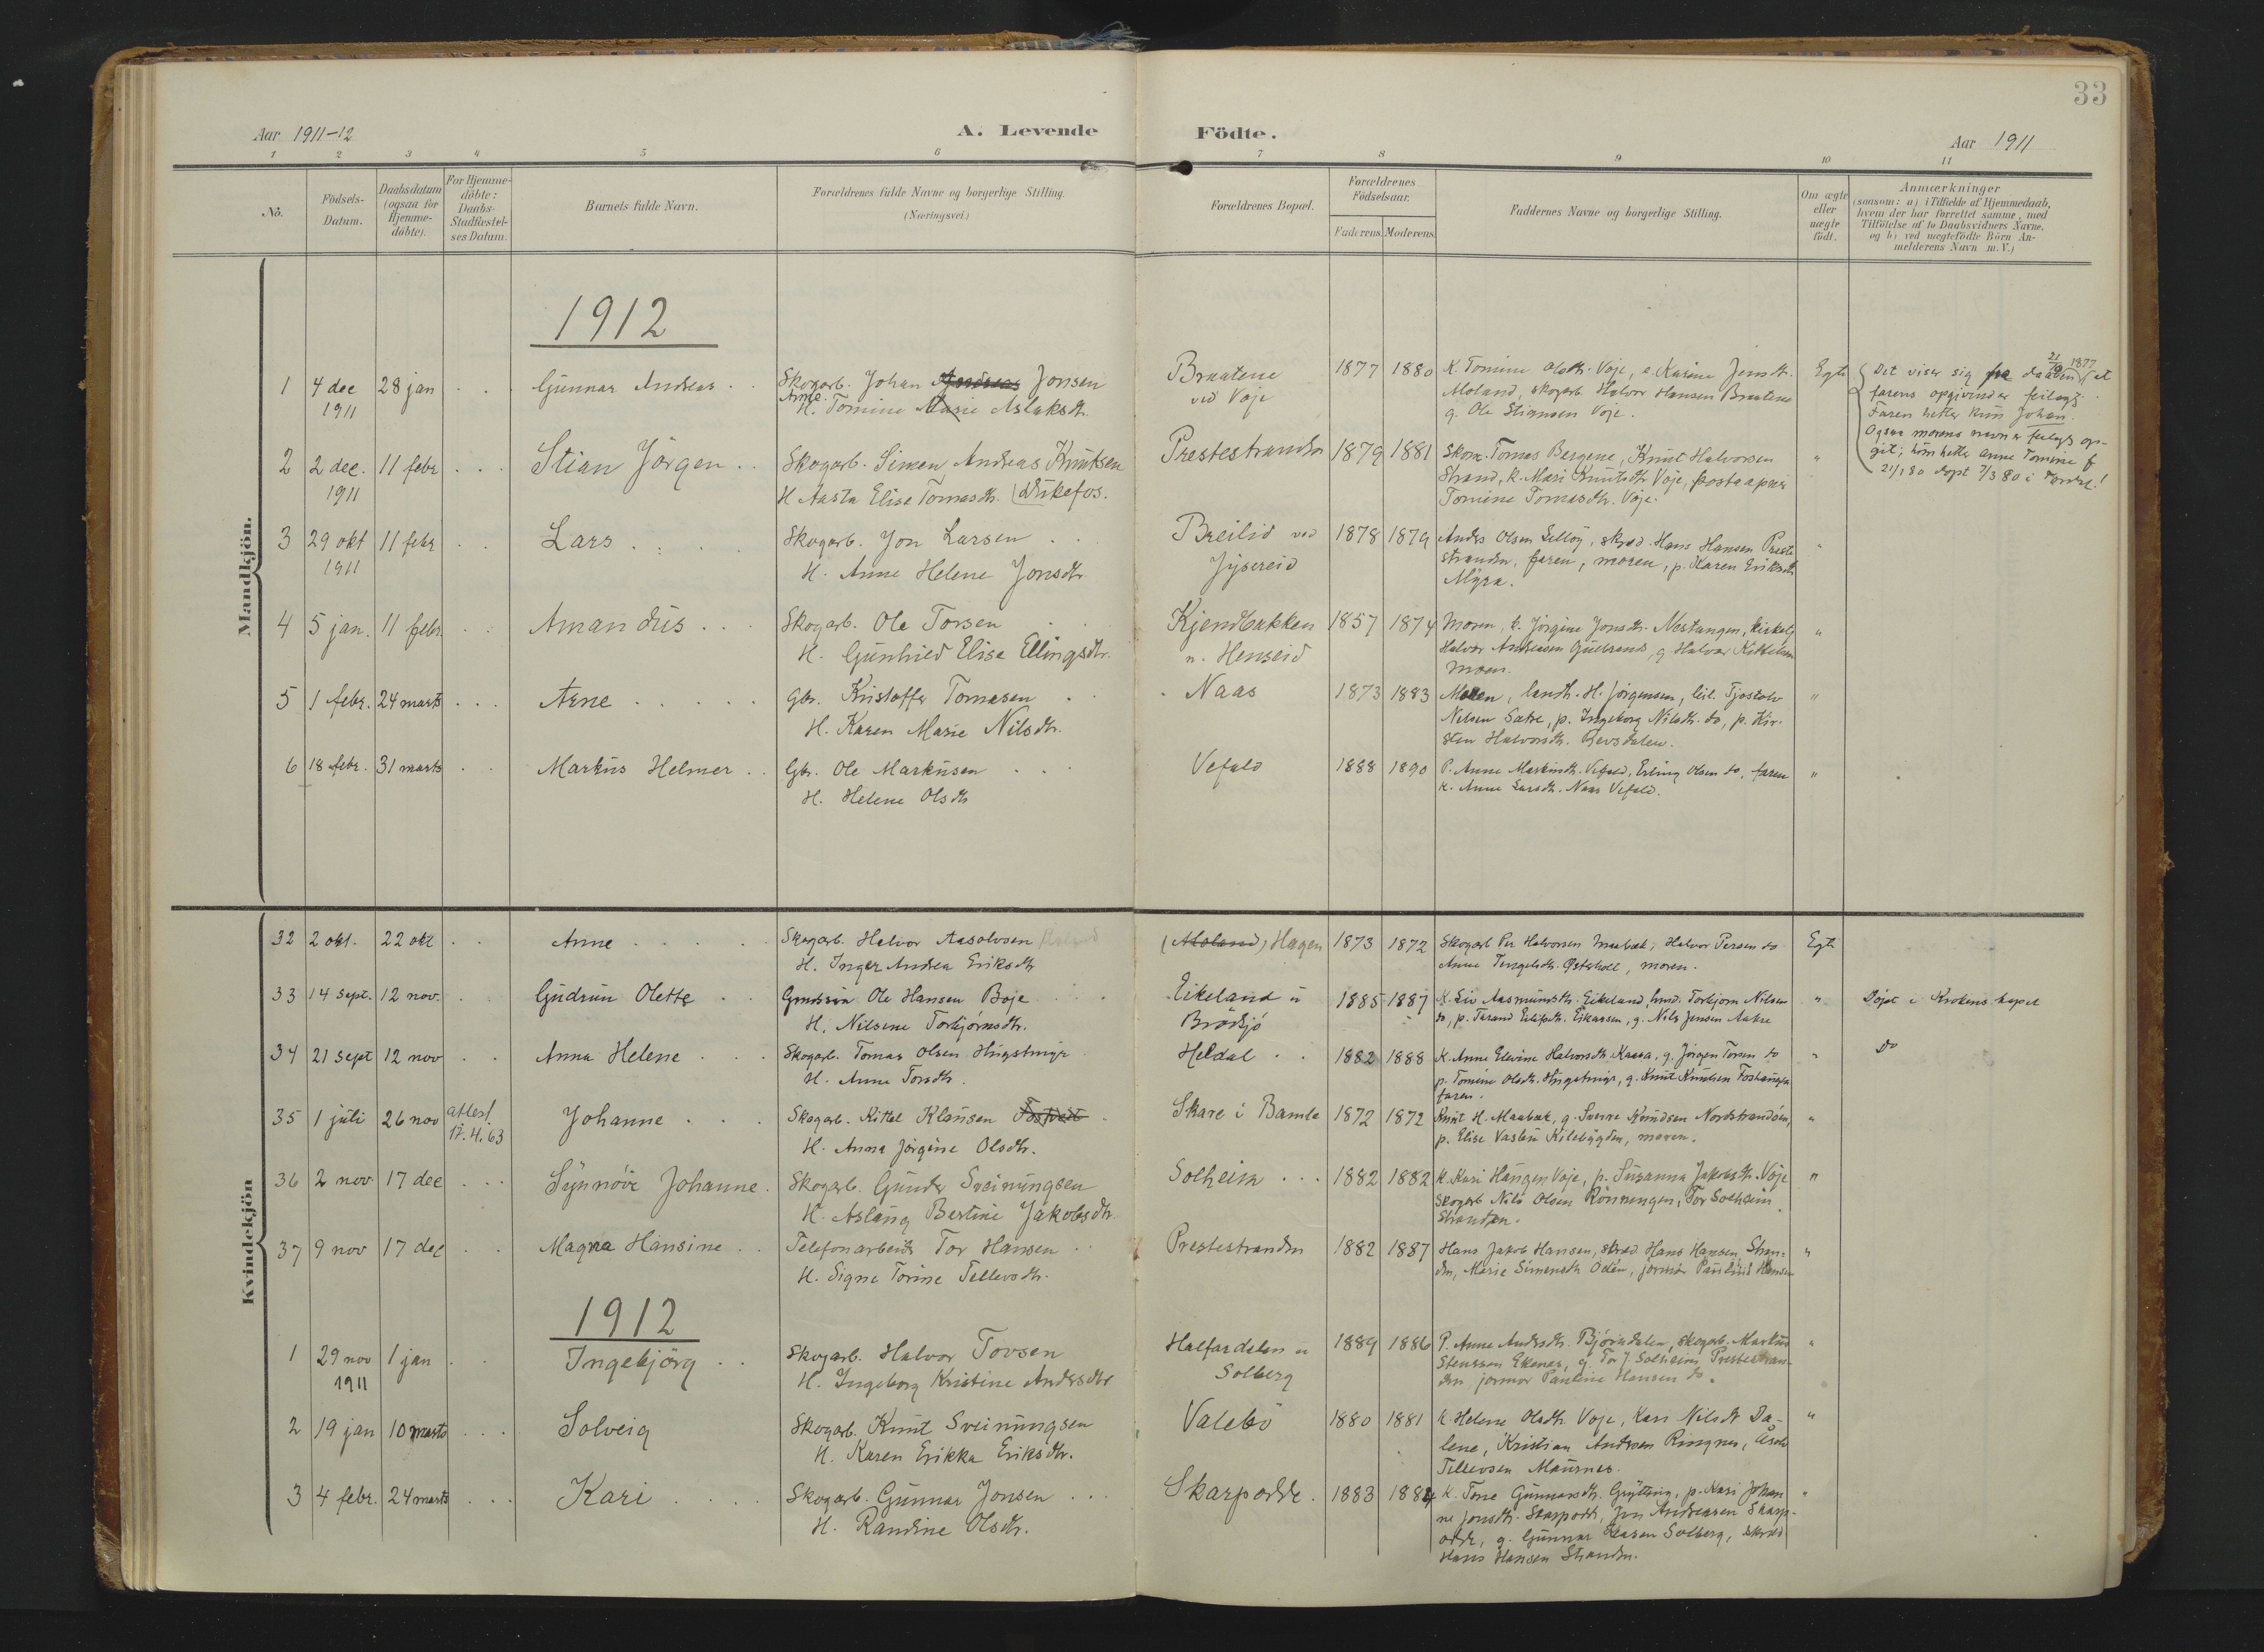 33
Aar 1911-12
A. Levende Födte.
Aar 1911
1 2 3 4 5 6 7 8 9 10 11
No.
Födsels-
Datum.
Daabsdatum
(ogsaa for
Hjemme-
döbte).
For Hjemme-
döbte:
Daabs-
Stadfæstel-
ses Datum.
Barnets fulde Navn.
Forældrenes fulde Navne og borgerlige Stilling.
(Næringsvei.)
Forældrenes Bopæl.
Forældrenes
Födselsaar.
Faderens. Moderens.
Faddernes Navne og borgerlige Stilling.
Om ægte
eller
uægte
födt.
Anmærkninger
(saasom: a) i Tilfælde af Hjemmedaab,
hvem der har forrettet samme, med
Tilföielse af to Daabsvidners Navne.
og b) ved uægtefödte Börn An-
melderens Navn m. V.)
Mandkjön.
1912
1 4 dec 28 jan Gunnar Andreas Skogarb. Johan Andreas Jonsen Braatene 1877 1880 K. Tomine Olsdtr. Voje, e. Karine Jensdtr. Egte
1911 Anne
H. Tomine Marie Aslaksdtr. ved Voje Moland, skogarb. Halvor Hansen Braatene
g. Ole Stiansen Voje.
Det viser sig fra daaben 21/10 1877 at
farens opgivender feilagt.
Faren hetter kun Johan.
Ogsaa morens navn er feilagt op-
git; hun hette Anne Tomine f
21/1 80 döpt 7/3 80 i
2 2 dec. 11 febr Stian Jörgen Skogarb. Simen Andreas Knutsen Prestestranden 1879 1881 Skom. Tomas Bergene, Knut Halvorsen "
1911 H Aasta Elise Tomasdtr. Dukefos. Strand, k. Mari Knutsdtr Voje, postaapner
Tomine Tomasdtr. Voje.
3 29 okt 11 febr Lars Skogarb. Jon Larsen Breilid ved 1878 1879 Anders Olsen Selloy, skræd. Hans Hansen Preste "
1911 H. Anne Helene Jonsdtr. Jysereid stranden, faren, moren, p. Karen Eriksdtr
Myra.
4 5 jan. 11 febr. Amandus Skogarb. Ole Torsen Kjendbakken 1857 1874 Moren, k. Jörgine Jonsdtr. Nestangen, kirkelg "
H. Gunhild Elise Ellingsdtr. n. Henseid Halvor Andreasen Gusrands, g Halvor Kittelsen
Moen.
5 1 febr. 24 marts Arne Gbr. Kristoffer Tomasen Naas 1873 1883 Moren, landh. H. Jörgensen, leil. Tjostolv "
H. Karen Marie Nilsdtr. Nelsen Sætre, p. Ingeborg Nilsdtr. do, p. Kir-
sten Halvorsdtr. Revsdalen.
6 18 febr. 31 marts Markus Helmer Gbr. Ole Markusen Vefald 1888 1890 P. Anne Markusdtr. Vefald, Erling Olsen do, faren "
H. Helene Olsdtr k. Anne Larsdtr. Naas Vefald.
Kvindekjön
32 2 okt. 22 okt Anne Skogarb. Halvor Aasolvsen (Moland) Hagen 1873 1872 Skogarb Per Halvorsen Maabæk, Halvor Persen do Egte
H. Inger Andrea Eriksdtr Anne Tengelsdtr. Österholt, moren.
33 14 sept. 12 nov. Gudrun Olette Grubsm. Ole Hansen Boje Eikeland i 1885 1887 K. Liv Aasmundsdtr. Eikeland, Smd. Torbjorn Nilsen " Döpt i Krokens kapel
H. Nilsine Torbjörnsdtr. Brödsjö do, p. Tarand Eilifsdtr. Eikaasen, g. Nils Jensen Aakre
34 21 sept 12 nov Anna Helene Skogarb. Tomas Olsen Hugstmyr Heldal 1882 1888 K. Anne Elevine Halvorsdtr. Kaasa, g. Jörgen Torsen do " Do
H. Anne Torsdtr. p. Tomine Olsdtr. Hugstmyr, g. Knut Knudsen Foshaugen
faren.
35 1 juli 26 nov attest
17.4.63 Johanne Skogarb. Kittel Klausen Fostveit Skare i Bamle 1872 1872 Knut H. Maabæk, g. Sverre Knudsen Nordstrandöen, "
H. Anna Jörgine Olsdtr. p. Elise Vasbu Kilebygden, moren.
36 2 nov 17 dec Synnöve Johanne. Skogarb. Gunder Sveinungsen Solheim 1882 1882 K. Kari Haugen Voje, p. Susanna Jakobsdtr. Voje "
H. Aslaug Bertine Jakobsdtr. Skogarb Nils Olsen Rönningen, Tor Solheim
Stranden.
37 9 nov 17 dec Magna Hansine Telefonarbeider Tor Hansen Prestestranden 1882 1887 Hans Jakob Hansen, skræd. Hans Hansen Stran- "
H. Signe Torine Tellevsdtr. den, Marie Simensdtr Odden, jormor Pauline Hansen
1912
1 29 nov 1 jan Ingebjörg Skogarb. Halvor Tovsen Halfardalen u 1889 1886 P. Anne Andersdtr. Björndalen, skogarb. Markus "
1911 H. Ingeborg Kristine Andersdtr Solberg Stensson Ekenes, g. Tor J. Solheim Prestestran-
den jormor Pauline Hansen do.
2 19 jan 10 marts Solveig Skogarb. Knut Sveinungsen Valebö 1880 1881 K. Helene Olsdtr. Voje, Kari Nilsdtr Da- "
H. Karen Erikka Eriksdtr. lene, Kristian Andersen Ringnes, Aasolv
Tellevsen Maurnes.
3 4 febr. 24 marts Kari Skogarb. Gunnar Jonsen Skarpodde 1883 1884 K. Tone Gunnarsdtr. Gryting, p. Kari Johan "
H. Randine Olsdtr. ne Jonsdtr. Skarpodde, Jon Andreasen Skarp-
odde, g. Gunnar Klasen Solberg, skræd
Hans Hansen Stranden.